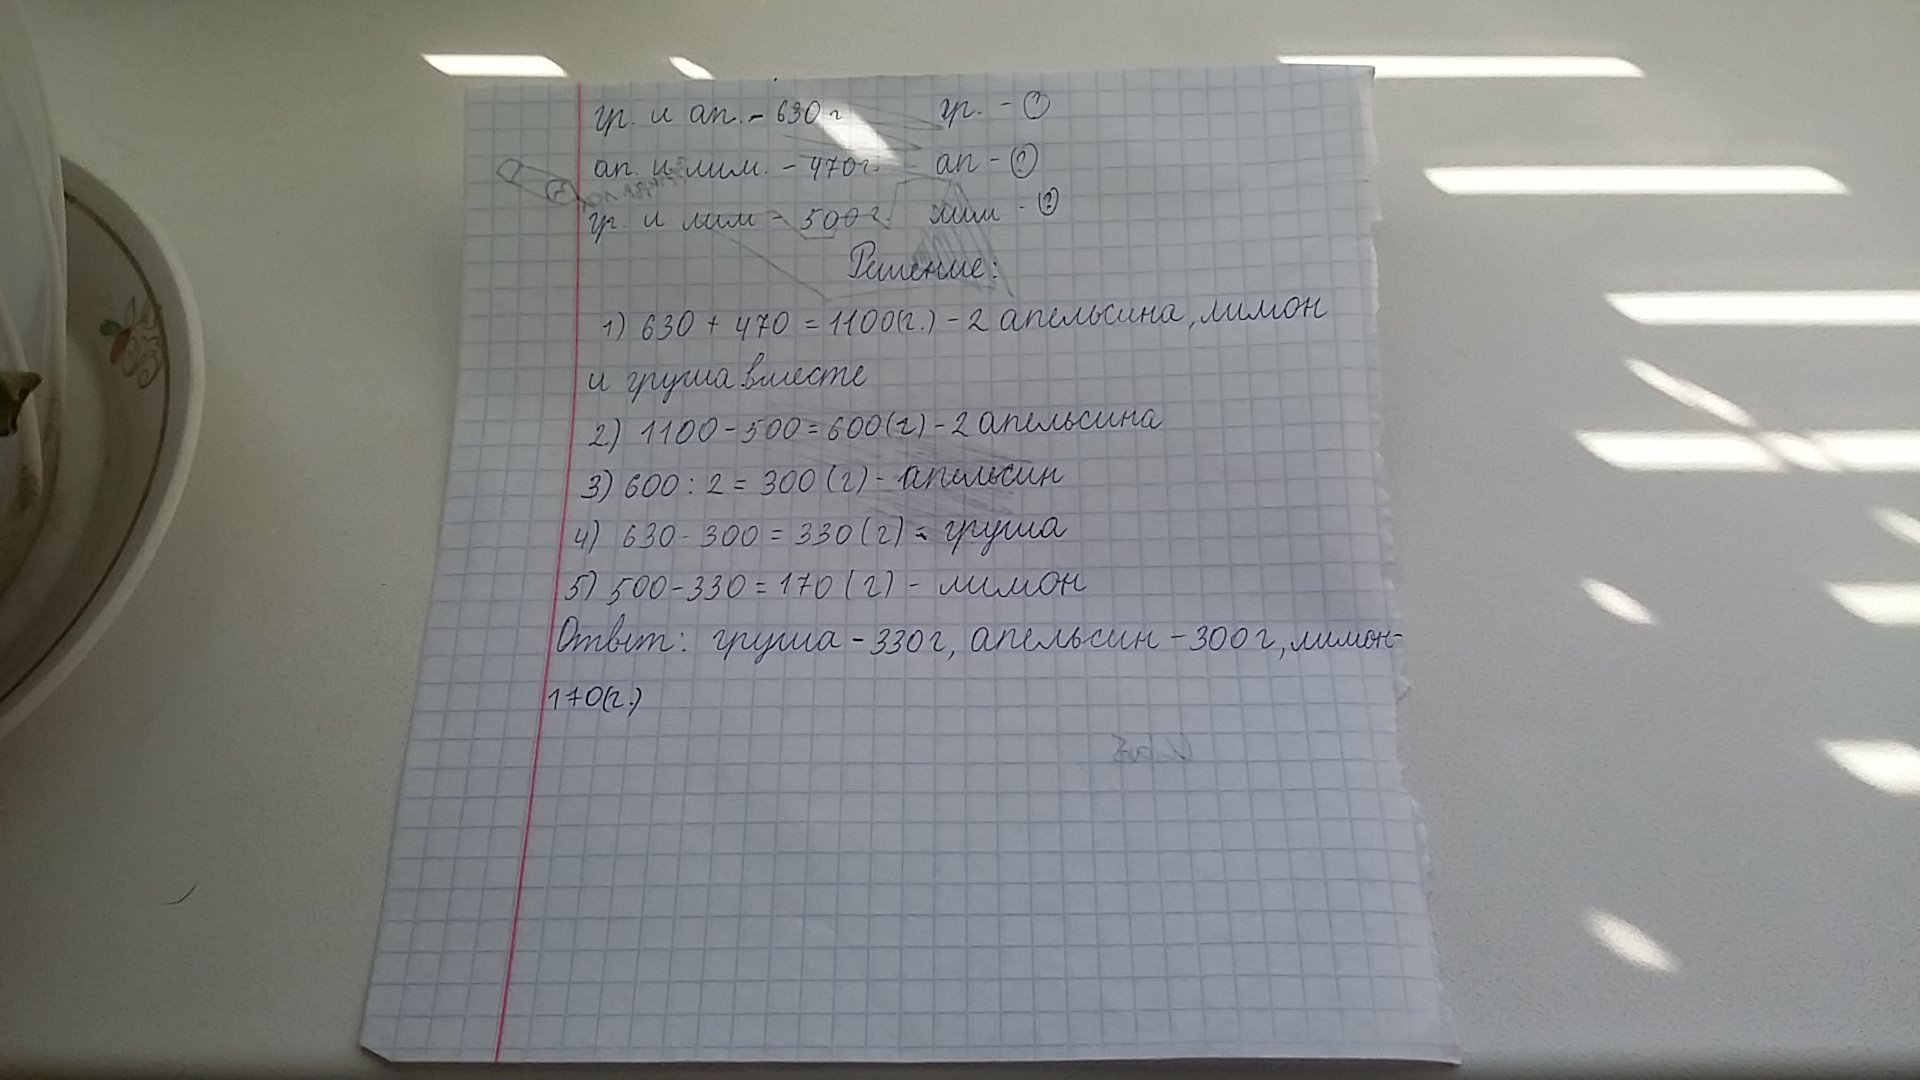 гр. и ап. - 630 г гр. - ?
ап. и лим. - 470 г. ап - ?
гр. и лим - 500 г. лим - ?
Решение:
1) 630 + 470 = 1100(г.) - 2 апельсина, лимон
и груша вместе
2) 1100 - 500 = 600(г) - 2 апельсина
3) 600 : 2 = 300 (г) - апельсин
4) 630 - 300 = 330 (г) - груша
5) 500 - 330 = 170 (г) - лимон
Ответ: груша - 330 г, апельсин - 300 г, лимон -
170(г.)